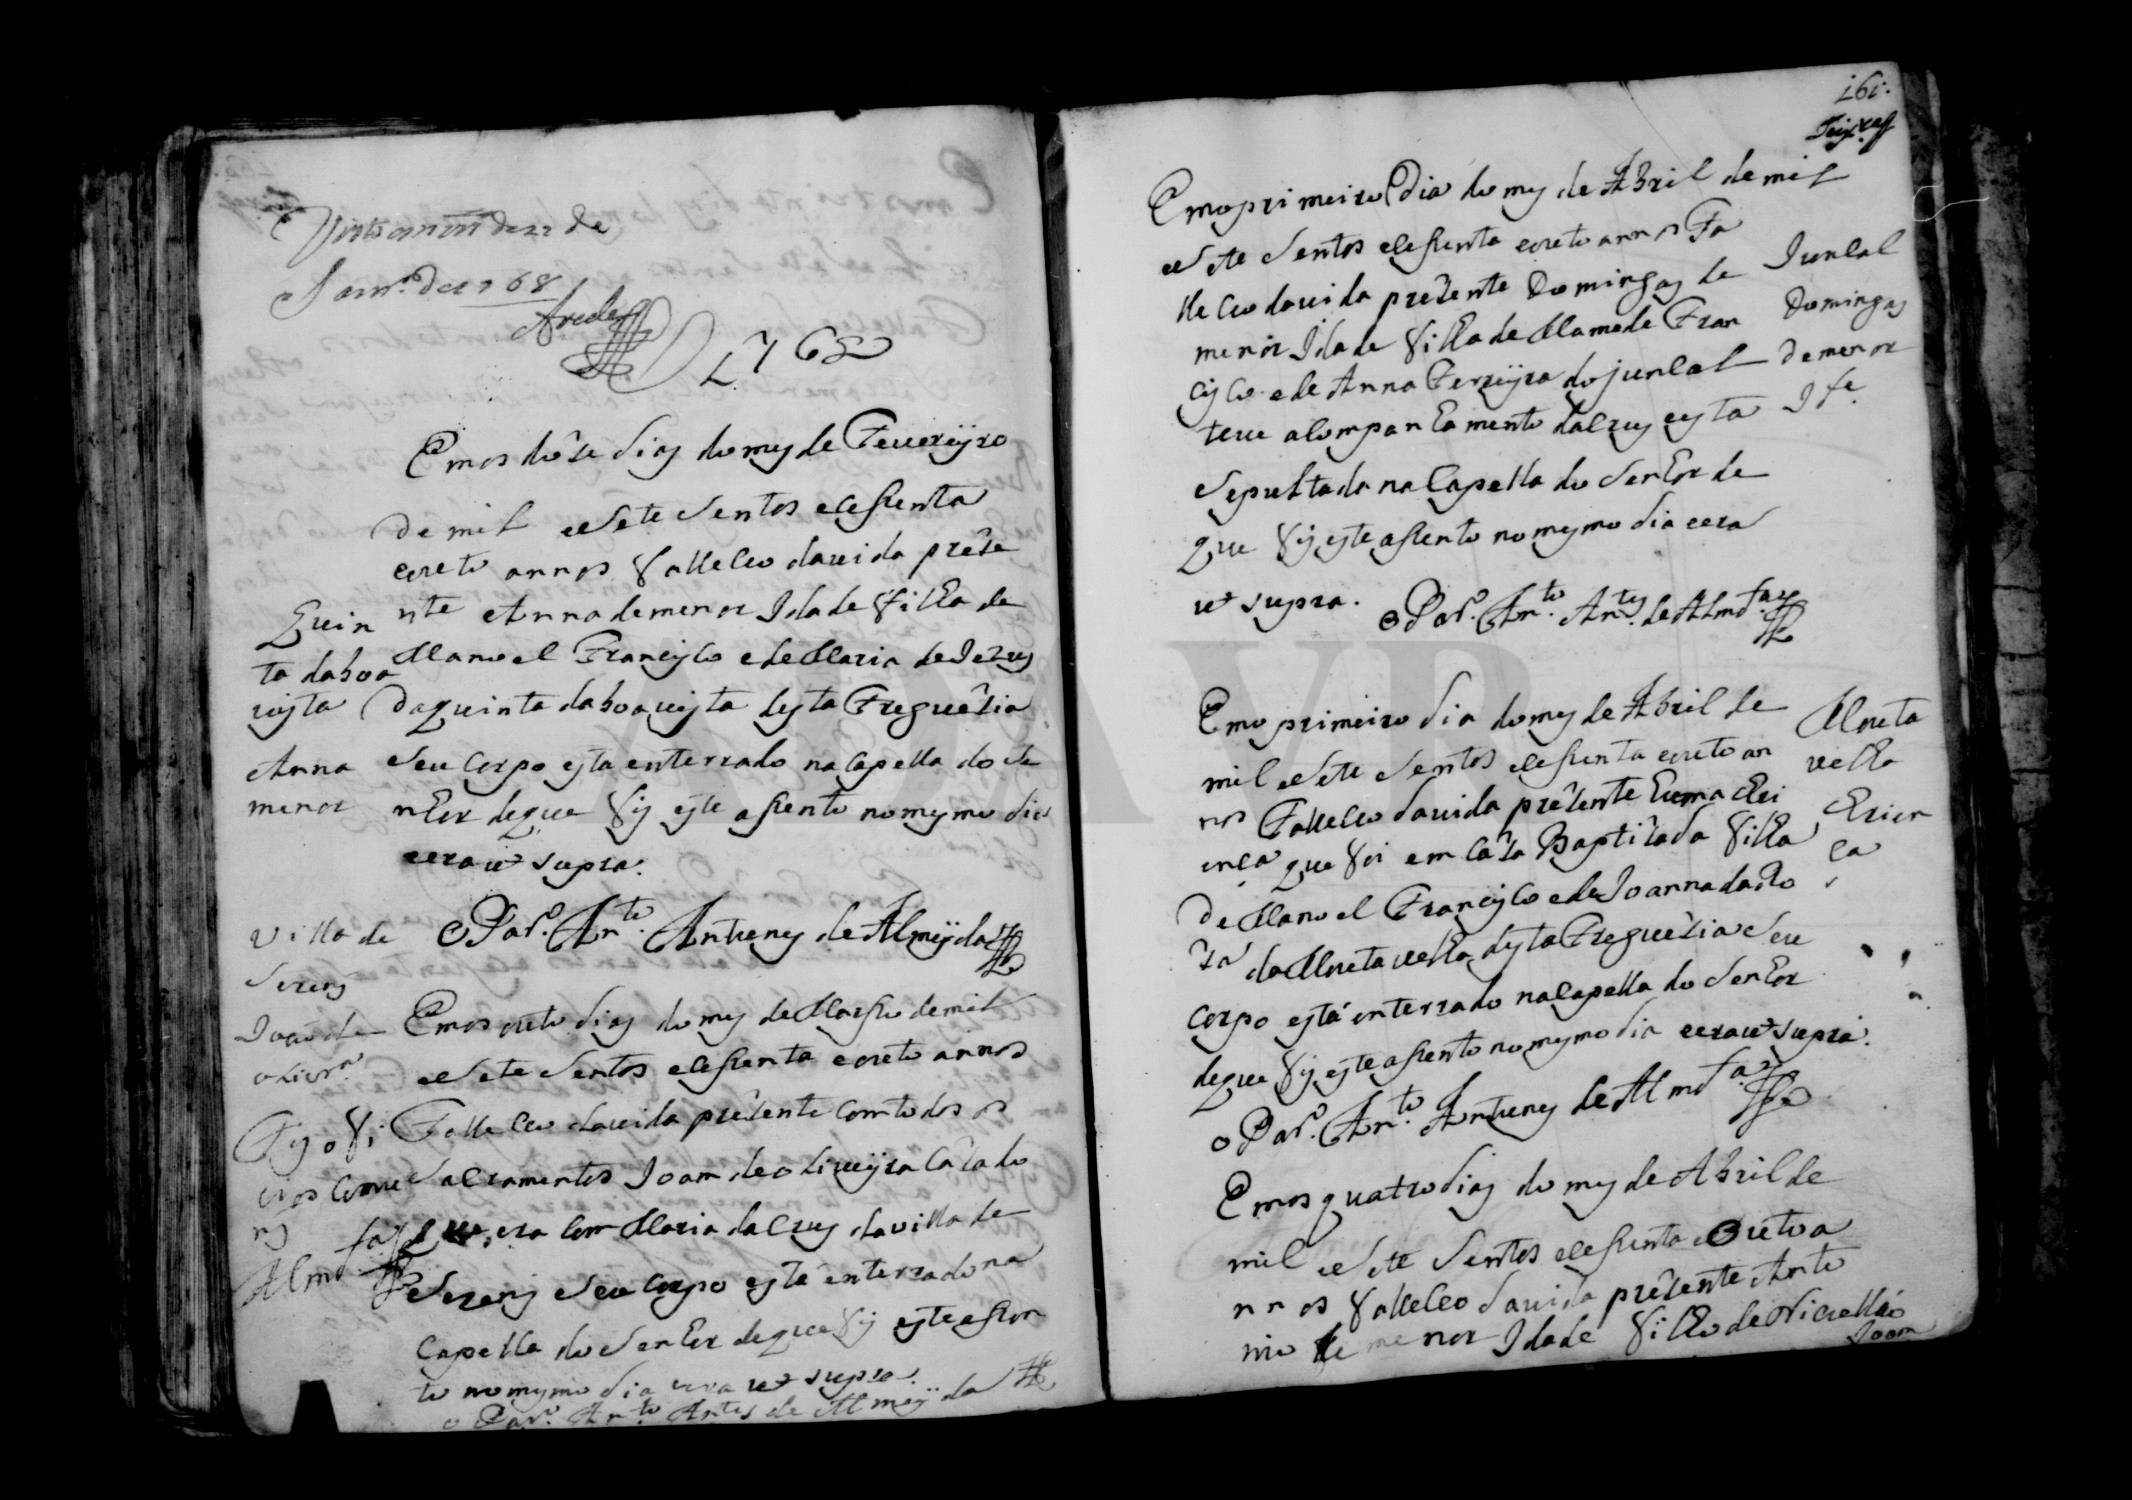 de 22 de
de 1768
1768
Emos dôze dias do mes de Feuereijro
de mil e sete sentos e cesenta
e outo annos falleceo da uida prêze
nte Anna de menor Idade filha de
Manoel Francisco e de Maria de Iezus
da quinta da boa uista desta Freguêzia
seu corpo esta enterrado na capella do se
nhor de que fis este asento no mesmo dia
e era ut supra.
o Par.º An.to Antunes de Almeijda
Quin
ta da boa
uista
Anna
menor
Emos outo dias do mes de Marso de mil
e sete sentos e cesenta e outo annos
Falleceo da uida prêzente com todos os
sacramentos Joam de oliueijra cazado
que era com Maria da Crus da uilla de
Serem seu corpo está enterrado na
capella do senhor de que fis este asen
to no mesmo dia e era ut supra.
o Par.º An.to Antes de Almeijda
Villa de
Serem
Joao de
oliur.ª
Almd.ª
161.
Emo primeiro dia do mes de Abril de mil
e sete sentos e cesenta e outo annos Fa
lleceo da uida prezente Domingas de
menor Idade filha de Mamede Fran
cisco e de Anna Ferreijra do juncal
teue acompanhamento da crus esta
sepultada na Capella do Senhor de
que fis este asento no mesmo dia e era
ut supra.
o Par.º An.to An.tes de Almd.ª
Juncal
Domingas
de menor
Id.e
Emo primeiro dia do mes de Abril de
mil e sete sentos e cesenta e outo an
nos Falleceo da uida prêzente huma cri
ença que foi em caza Baptizada filha
de Manoel Francisco e de Joanna da Ro
za da Moutauelha desta Freguêzia seu
corpo está enterrado na capella do Senhor
de que fis este asento no mesmo dia e era ut supra.
o Par.º An.to Antunes de Almd.ª
Mouta
uelha
Crien
ca
Emos quatro dias do mes de Abril de
mil e sete sentos e cesenta e outo a
nnos falleceo da uida prêzente Anto
nio de menor Idade filho de
Joam